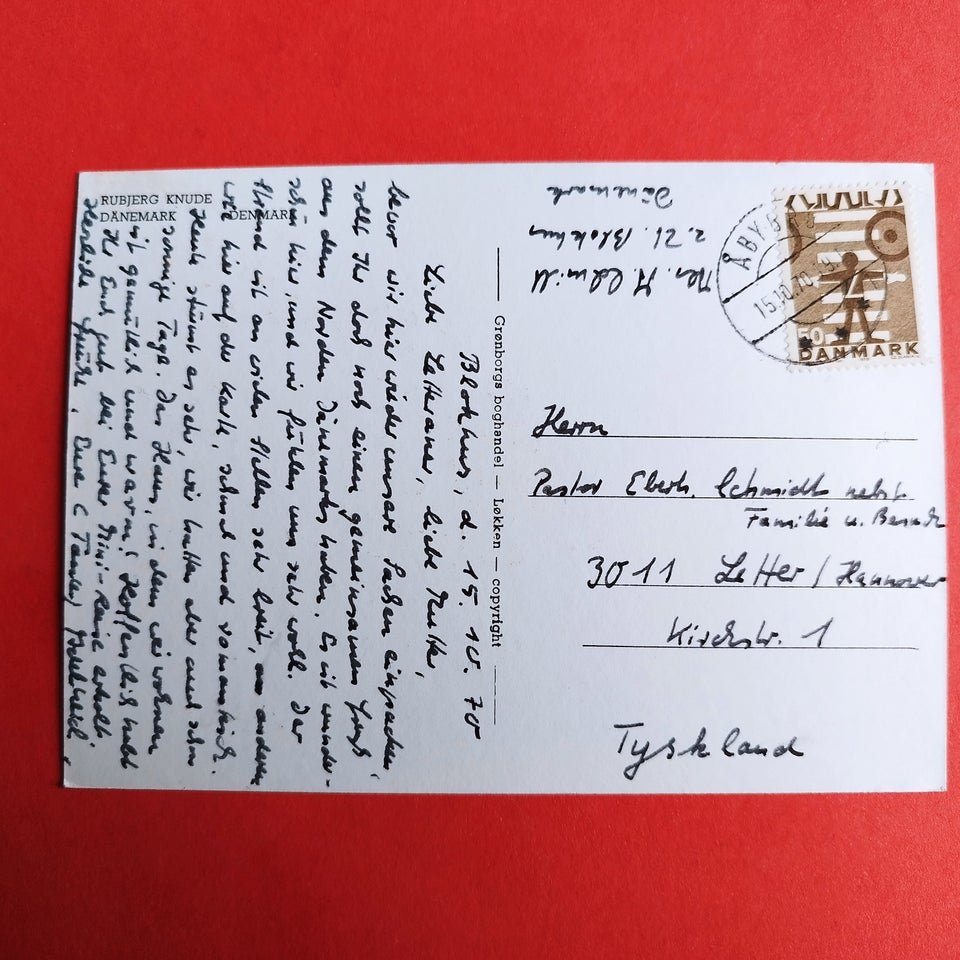 RUBJERG KNUDE
DÄNEMARK DENMARK
Blokhus, d. 15. 10. 70
Liebe Letteraner, liebe Mutter,
bevor wir hier wieder unsere Sachen einpacken,
sollt Ihr doch noch einen gemeinsamen Gruß
aus dem Norden Dänemarks haben. Es ist wunder-
schön hier, und wir fühlen uns sehr wohl. Der
Strand ist an vielen Stellen sehr breit, an anderen
wie hier auf der Karte, schmal und romantisch.
Heute stürmt es sehr, wir hatten aber auch schon
sonnige Tage. Das Haus, in dem wir wohnen
ist gemütlich und warm! Hoffentlich habt
Ihr Euch gut bei Eurer Mini-Reise erholt.
Herzliche Grüße, Eure
Grønborgs boghandel — Løkken — copyright
z. Zt. Blokhus
Dänemark
ÅBY
15.10.70
50
DANMARK
Herrn
Pastor Eberh. Schmidt nebst
Familie u.
3011 Letter/Hannover
Kirchstr. 1
Tyskland